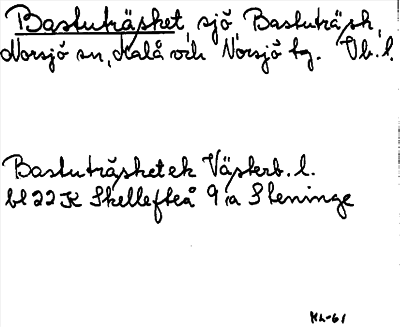 Bastuträsket, sjö, Bastuträsk,
Norsjö sn, Malå och Norsjö tg. Vb. l.
Bastuträsket ek Västerb. l.
bl 22 K Skellefteå 9 a Steninge